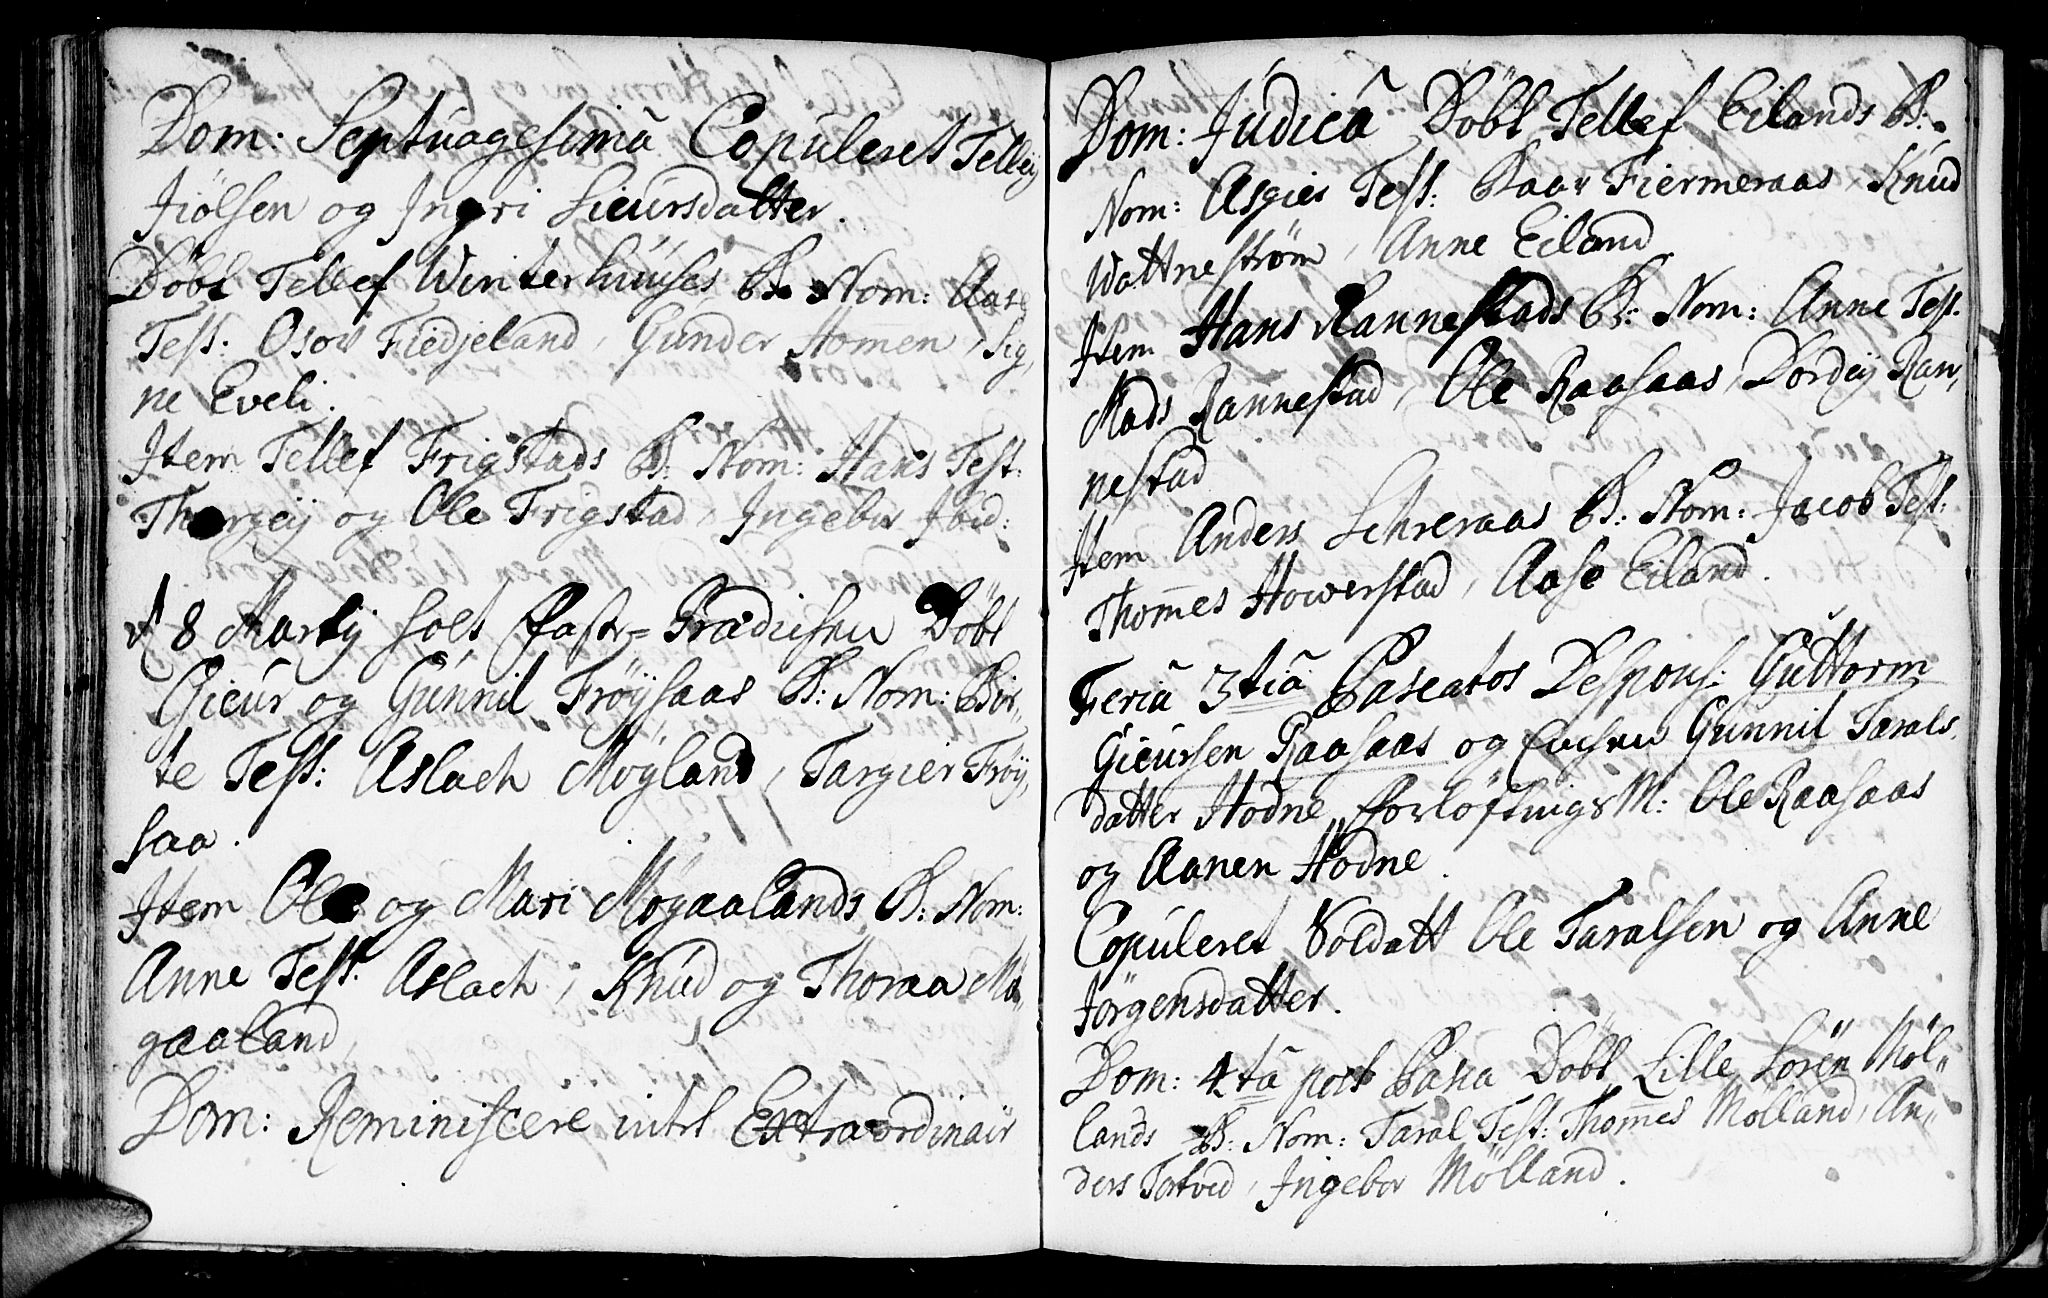 Dom: Septuagesima Copuleret Tellef
Jiölsen og Ingri Sieursdatter.
Döbt Tellef Winterhuuses B: Nom: Aase
Test: Osov Fiedjeland, Gunder Homen, Sig,
ne Eveli.
Item Tellef Frigstads B: Nom: Hans Test:
Thorgeij og Ole Frigstad, Ingebor Ibid:
d 8 Martij holt Faste-Prædichen Döbt
Gieur og Gunnil Fröysaas B: Nom: Bir,,
te Test: Aslach Mögland, Targier Fröy,,
saa.
Item Ole og Mari Mögaalands B: Nom:
Anne Test: Aslach, Knud og Thoraa Mö,,
gaaland,
Dom: Reminiscere intet Extraordinair
Dom: Judica Döbt Tellef Eilands B:
Nom: Asgier Test: Baar Fiermeraas, Knud
Wattneström, Anne Eiland
Item Hans Rannestads B: Nom: Anne Test:
Mads Rannestad, Ole Raasaas, Dordeij Ran,,
nestad
Item Anders Schreraas B: Nom: Jacob Test:
Thomes Howerstad, Aase Eiland.
Feria 3tia Pascatos Despons: Guttorm
Gieursen Raasaas og Gunnil Tarals,
datter Hodne, Forlöftnigs M: Ole Raasaas
og Aanen Hodne.
Copuleret Soldatt Ole Taralsen og Anne
Jörgensdatter.
Dom: 4ta post Pasca Döbt Lille Sorën Möl,,
lands B: Nom: Taral Test: Thomes Mölland, An,,
ders Tortved, Ingebor Mölland.